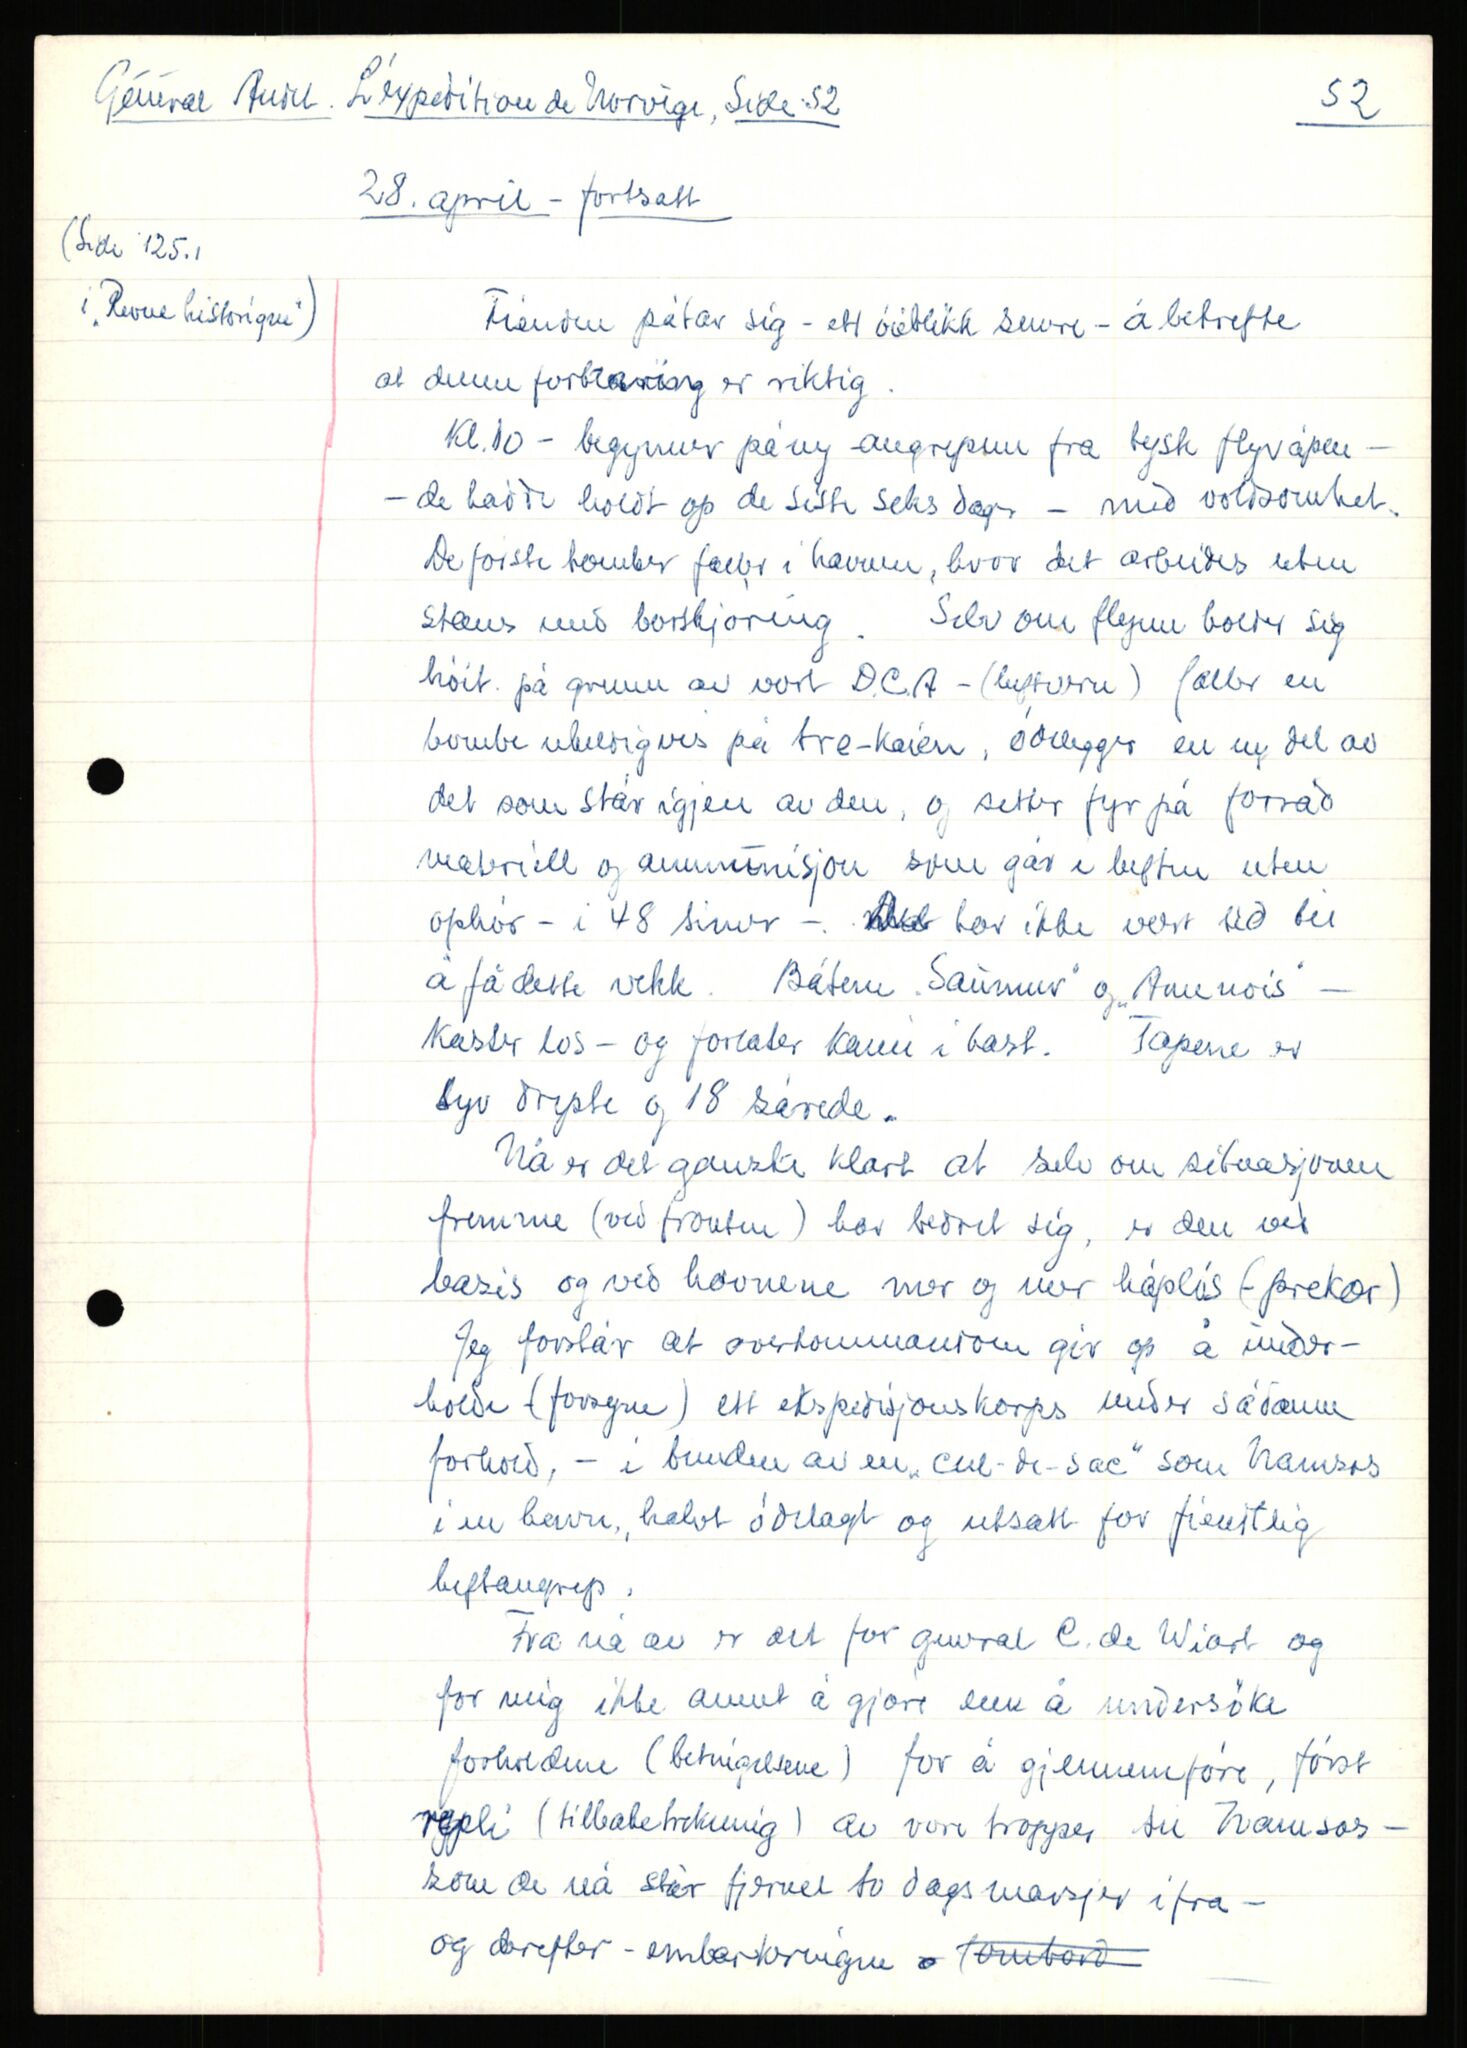 Général Audet. L'éxpedition de Norvège, Side 52
52
28. april - fortsatt
(Side 125.,
i „Revue historique")
Fienden påtar sig - ett öieblikk senere - å betrefte
at denne forklaring er riktig.
Kl. 10 - begynner påny angrepene fra tysk flyvåpen -
- de hadde holdt op de siste seks dage - med voldsomhet.
De förste bomber faller i havnen, hvor det arbeides uten
stans med bortkjöring. Selv om flyene holder sig
höit på grunn av vort D.C.A - (luftvern) faller en
bombe uheldigvis på tre-kaien, ödelegger en ny del av
det som står igjen av den, og setter fyr på forråd
materiell og ammunisjon som går i luften uten
ophör - i 48 timer -. Det har ikke vært tid til
å få dette vekk. Båtene „Saumur" og „Amienois" -
kaster los - og forlater kaien i hast. Tapene er
syv drepte og 18 sårede.
Nå er det ganske klart at selv om situasjonen
fremme (ved fronten) har bedret sig, er den ved
basis og ved havnene mer og mer håplös (- prekær)
Jeg forstår at overkommandoen gir op å under-
holde - (forsyne) ett ekspedisjonskorps under sådanne
forhold, - i bunden av en „cul-de-sac" som Namsos
i en havn, halvt ödelagt og utsatt for fiendtlig
luftangrep.
Fra nå av er det for general C. de Wiart og
for mig ikke annet å gjöre enn å undersöke
forholdene (betingelsene) for å gjennemföre, först
repli (tilbaketrekning) av våre tropper til Namsos -
som de nå står fjernet to dagsmarsjer ifra -
og derefter - embarkeringen - (ombord